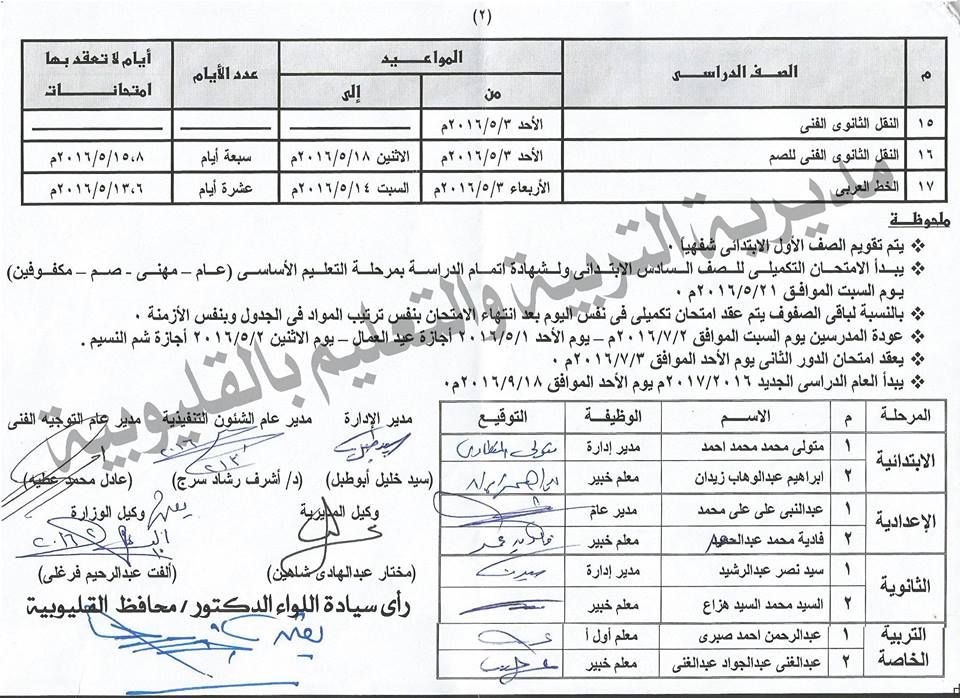 (٢)
م الصف الدراسى المواعيد عدد الأيام أيام لا تعقد بها امتحانات
من إلى
١٥ النقل الثانوى الفنى الأحد ٢٠١٦/٥/٣م
١٦ النقل الثانوى الفنى للصم الأحد ٢٠١٦/٥/٣م الاثنين ٢٠١٦/٥/١٨م سبعة أيام ٢٠١٦/٥/١٥،٨م
١٧ الخط العربى الأربعاء ٢٠١٦/٥/٣م السبت ٢٠١٦/٥/١٤م عشرة أيام ٢٠١٦/٥/١٣،٦م
ملحوظة
يتم تقويم الصف الأول الابتدائى شفهياً ٠
يبدأ الامتحان التكميلى للصف السادس الابتدائى ولشهادة اتمام الدراسة بمرحلة التعليم الأساسى (عام – مهنى - صم – مكفوفين)
يوم السبت الموافق ٢٠١٦/٥/٢١م ٠
بالنسبة لباقى الصفوف يتم عقد امتحان تكميلى فى نفس اليوم بعد انتهاء الامتحان بنفس ترتيب المواد فى الجدول وبنفس الأزمنة ٠
عودة المدرسين يوم السبت الموافق ٢٠١٦/٧/٢م – يوم الأحد ٢٠١٦/٥/١ أجازة عيد العمال – يوم الاثنين ٢٠١٦/٥/٢ أجازة شم النسيم .
يعقد امتحان الدور الثانى يوم الأحد الموافق ٢٠١٦/٧/٣م ٠
يبدأ العام الدراسى الجديد ٢٠١٧/٢٠١٦م يوم الأحد الموافق ٢٠١٦/٩/١٨م٠
مديرية التربية والتعليم بالقليوبية
المرحلة م الاسم الوظيفة التوقيع
الابتدائية ١ متولى محمد محمد احمد مدير إدارة
٢ ابراهيم عبدالوهاب زيدان معلم خبير
الإعدادية ١ عبدالنبى على على محمد مدير عام
٢ فادية محمد معلم خبير
الثانوية ١ سيد نصر عبدالرشيد مدير إدارة
٢ السيد محمد السيد هزاع معلم خبير
التربية الخاصة ١ عبدالرحمن احمد صبرى معلم أول أ
٢ عبدالغنى عبدالجواد عبدالغنى معلم خبير
مدير الإدارة مدير عام الشئون التنفيذية مدير عام التوجيه الفنى
(سيد خليل أبوطبل) (د/ أشرف رشاد سرج) (عادل محمد عطيه)
وكيل المديرية وكيل الوزارة
(مختار عبدالهادى شاهين) (ألفت عبدالرحيم فرغلى)
رأى سيادة اللواء الدكتور / محافظ القليوبية